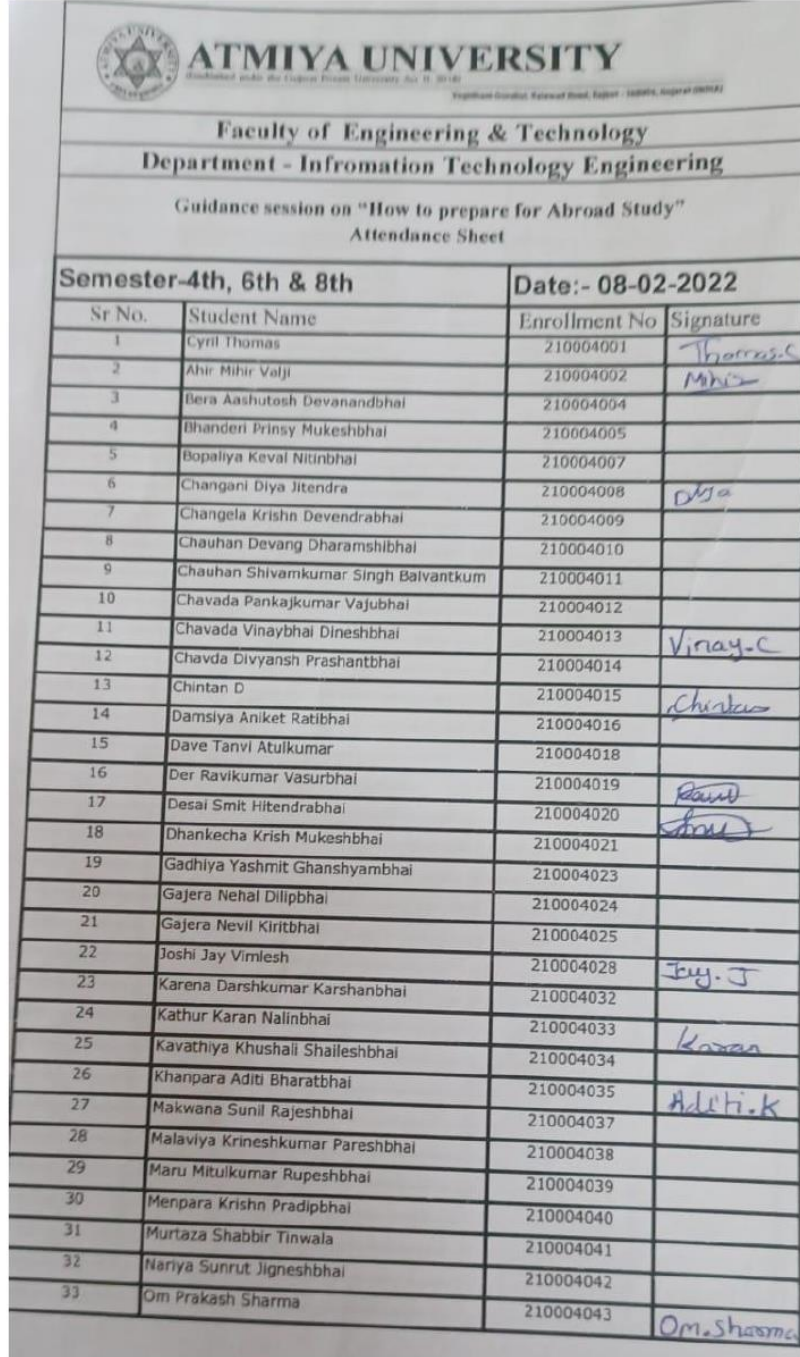 ATMIYA UNIVERSITY
(Established under the Gujarat Private University Act 11, 2018)
Faculty of Engineering & Technology
Department - Infromation Technology Engineering
Guidance session on "How to prepare for Abroad Study"
Attendance Sheet
Semester-4th, 6th & 8th Date:- 08-02-2022
Sr No. Student Name Enrollment No Signature
1 Cyril Thomas 210004001 Thomas.C
2 Ahir Mihir Valji 210004002 Mihir
3 Bera Aashutosh Devanandbhai 210004004
4 Bhanderi Prinsy Mukeshbhai 210004005
5 Bopaliya Keval Nitinbhai 210004007
6 Changani Diya Jitendra 210004008 Diya
7 Changela Krishn Devendrabhai 210004009
8 Chauhan Devang Dharamshibhai 210004010
9 Chauhan Shivamkumar Singh Balvantkum 210004011
10 Chavada Pankajkumar Vajubhai 210004012
11 Chavada Vinaybhai Dineshbhai 210004013 Vinay.C
12 Chavda Divyansh Prashantbhai 210004014
13 Chintan D 210004015 Chintan
14 Damsiya Aniket Ratibhai 210004016
15 Dave Tanvi Atulkumar 210004018
16 Der Ravikumar Vasurbhai 210004019
17 Desai Smit Hitendrabhai 210004020
18 Dhankecha Krish Mukeshbhai 210004021
19 Gadhiya Yashmit Ghanshyambhai 210004023
20 Gajera Nehal Dilipbhai 210004024
21 Gajera Nevil Kiritbhai 210004025
22 Joshi Jay Vimlesh 210004028 Jay.J
23 Karena Darshkumar Karshanbhai 210004032
24 Kathur Karan Nalinbhai 210004033 Karan
25 Kavathiya Khushali Shaileshbhai 210004034
26 Khanpara Aditi Bharatbhai 210004035 Aditi.K
27 Makwana Sunil Rajeshbhai 210004037
28 Malaviya Krineshkumar Pareshbhai 210004038
29 Maru Mitulkumar Rupeshbhai 210004039
30 Menpara Krishn Pradipbhai 210004040
31 Murtaza Shabbir Tinwala 210004041
32 Nariya Sunrut Jigneshbhai 210004042
33 Om Prakash Sharma 210004043 Om.Sharma